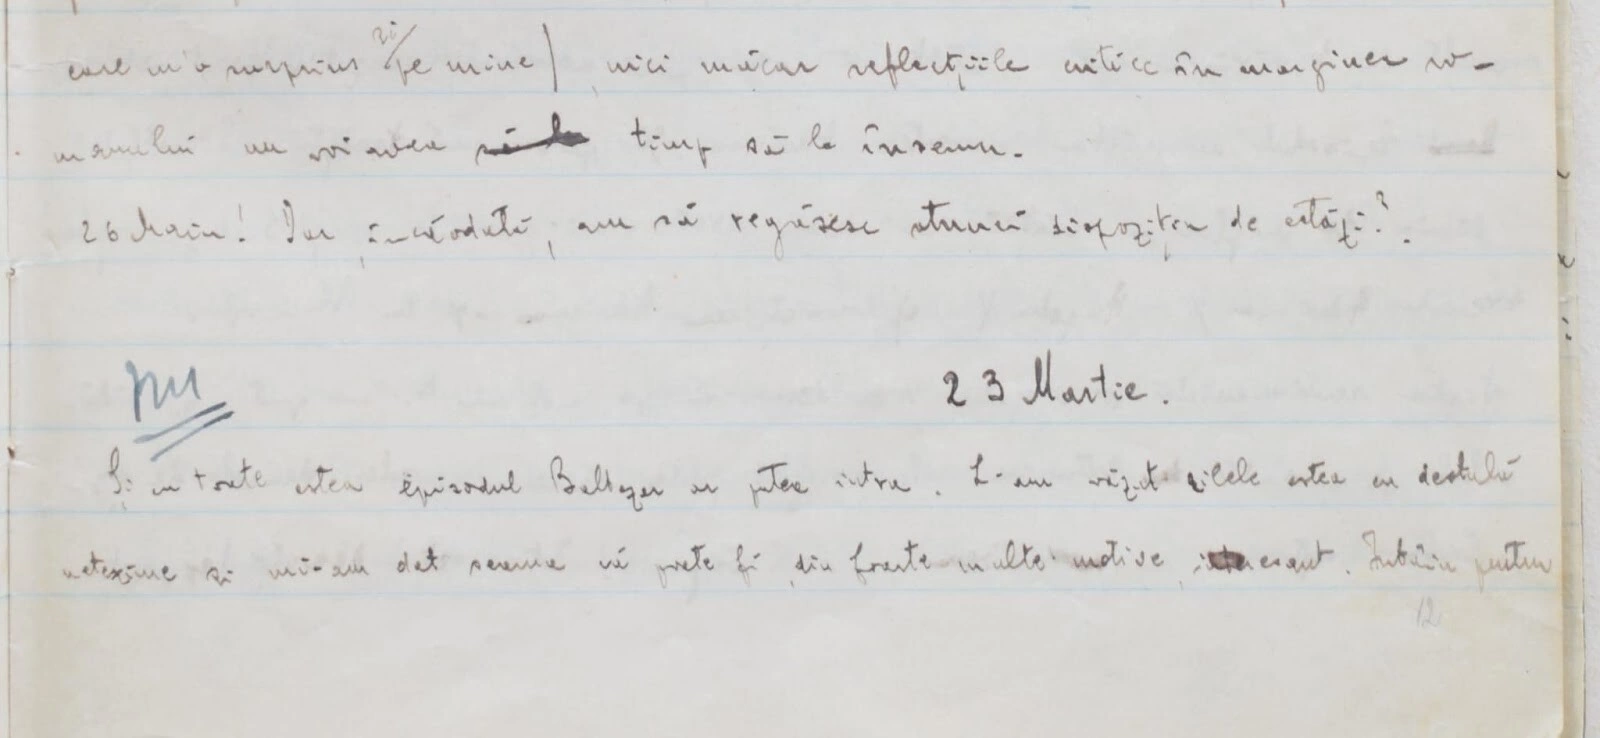 care m'a surprins și pe mine) nici măcar reflecțiile critice în marginea ro-
manului nu voi avea timp să le însemn.
26 Maiu! Dar, încăodată, am să regăsesc atunci dispoziția de astăzi?
nu
23 Martie.
Și cu toate astea episodul Baltazar ar putea intra. L-am văzut zilele astea cu destulă
netezime și mi-am dat seama că poate fi, din foarte multe motive, interesant. Întâiu pentru
12